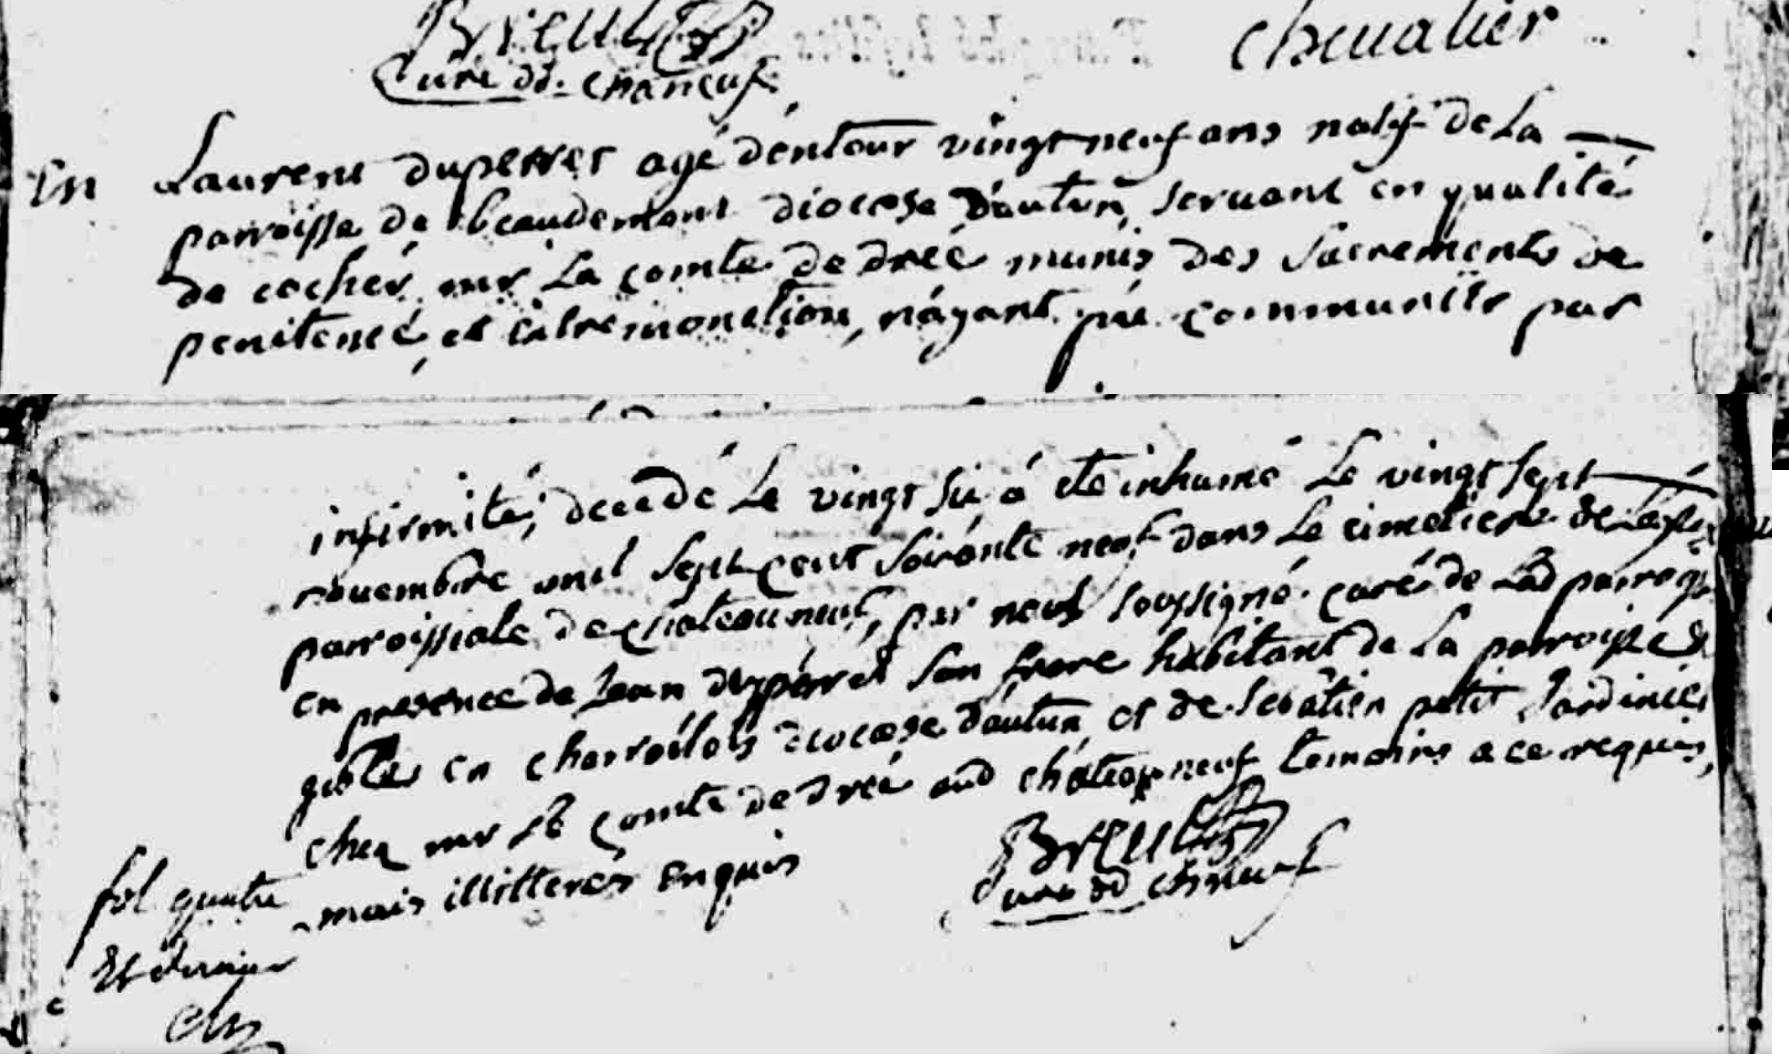 Breul Chevalier
Curé dd. chaneuf
En Laurent duperret agé dentour vingt neuf ans natif de La
parroisse de beaudemont diocese Dautun, servant en qualité
de cocher mr La comte de drée munis des sacrements de
penitence, et extremonction, náyant pu communier par
infirmité, decedé Le vingt six á eté inhumé Le vingt sept
novembre mil sept cent soixante neuf dans Le cimetiere de
parroissiale de chateauneuf, par nous soussigné curé de Lad parroiss
en presence de Jean duperret son frere habitant de La parroisse de
en charrollois diocese dautun et de sebatien petit Jardinier
chez mr Le comte de drée aud chateauneuf temoins a ce requis,
mais illitterés enquis
Breul
Curé dd chneuf
fol quatre
Et dernier